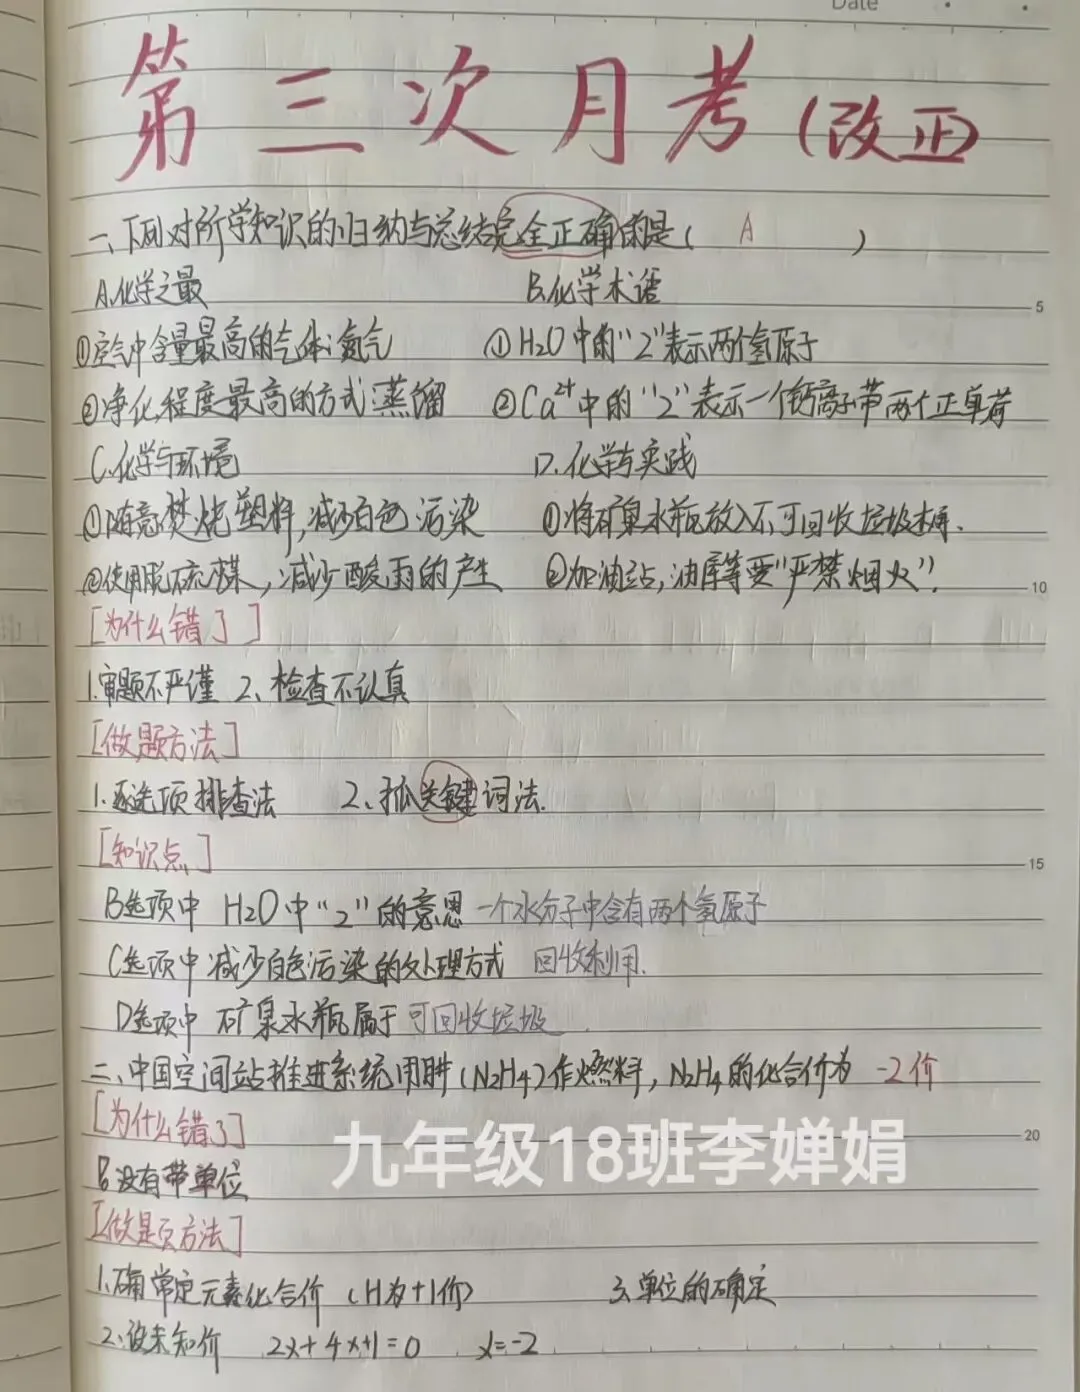 Date
第三次月考(改正)
一、下列对所学知识的归纳与总结完全正确的是( A )
A.化学之最 B.化学术语
①空气中含量最高的气体:氮气 ①H2O中的"2"表示两个氢原子
②净化程度最高的方式 蒸馏 ②Ca²⁺中的"2"表示一个钙离子带两个正单荷
C.化学与环境 D.化学与实践
①随意焚烧塑料,减少白色污染 ①将矿泉水瓶放入不可回收垃圾桶.
②使用脱硫煤,减少酸雨的产生 ②加油站,油库等要"严禁烟火".
5
10
[为什么错了]
1.审题不严谨 2、检查不认真
[做题方法]
1.逐选项排查法 2、抓关键词法.
[知识点]
15
B选项中 H2O中"2"的意思 一个水分子中含有两个氢原子
C选项中 减少白色污染的处理方式 回收利用.
D选项中 矿泉水瓶属于可回收垃圾.
二、中国空间站推进系统用肼(N2H4)作燃料,N2H4的化合价为 -2价
[为什么错了]
20
九年级18班李婵娟
没有带单位
[做题方法]
1.确常定元素化合价 (H为+1价) 3.单位的确定
2、设未知价 2x+4×1=0 x=-2